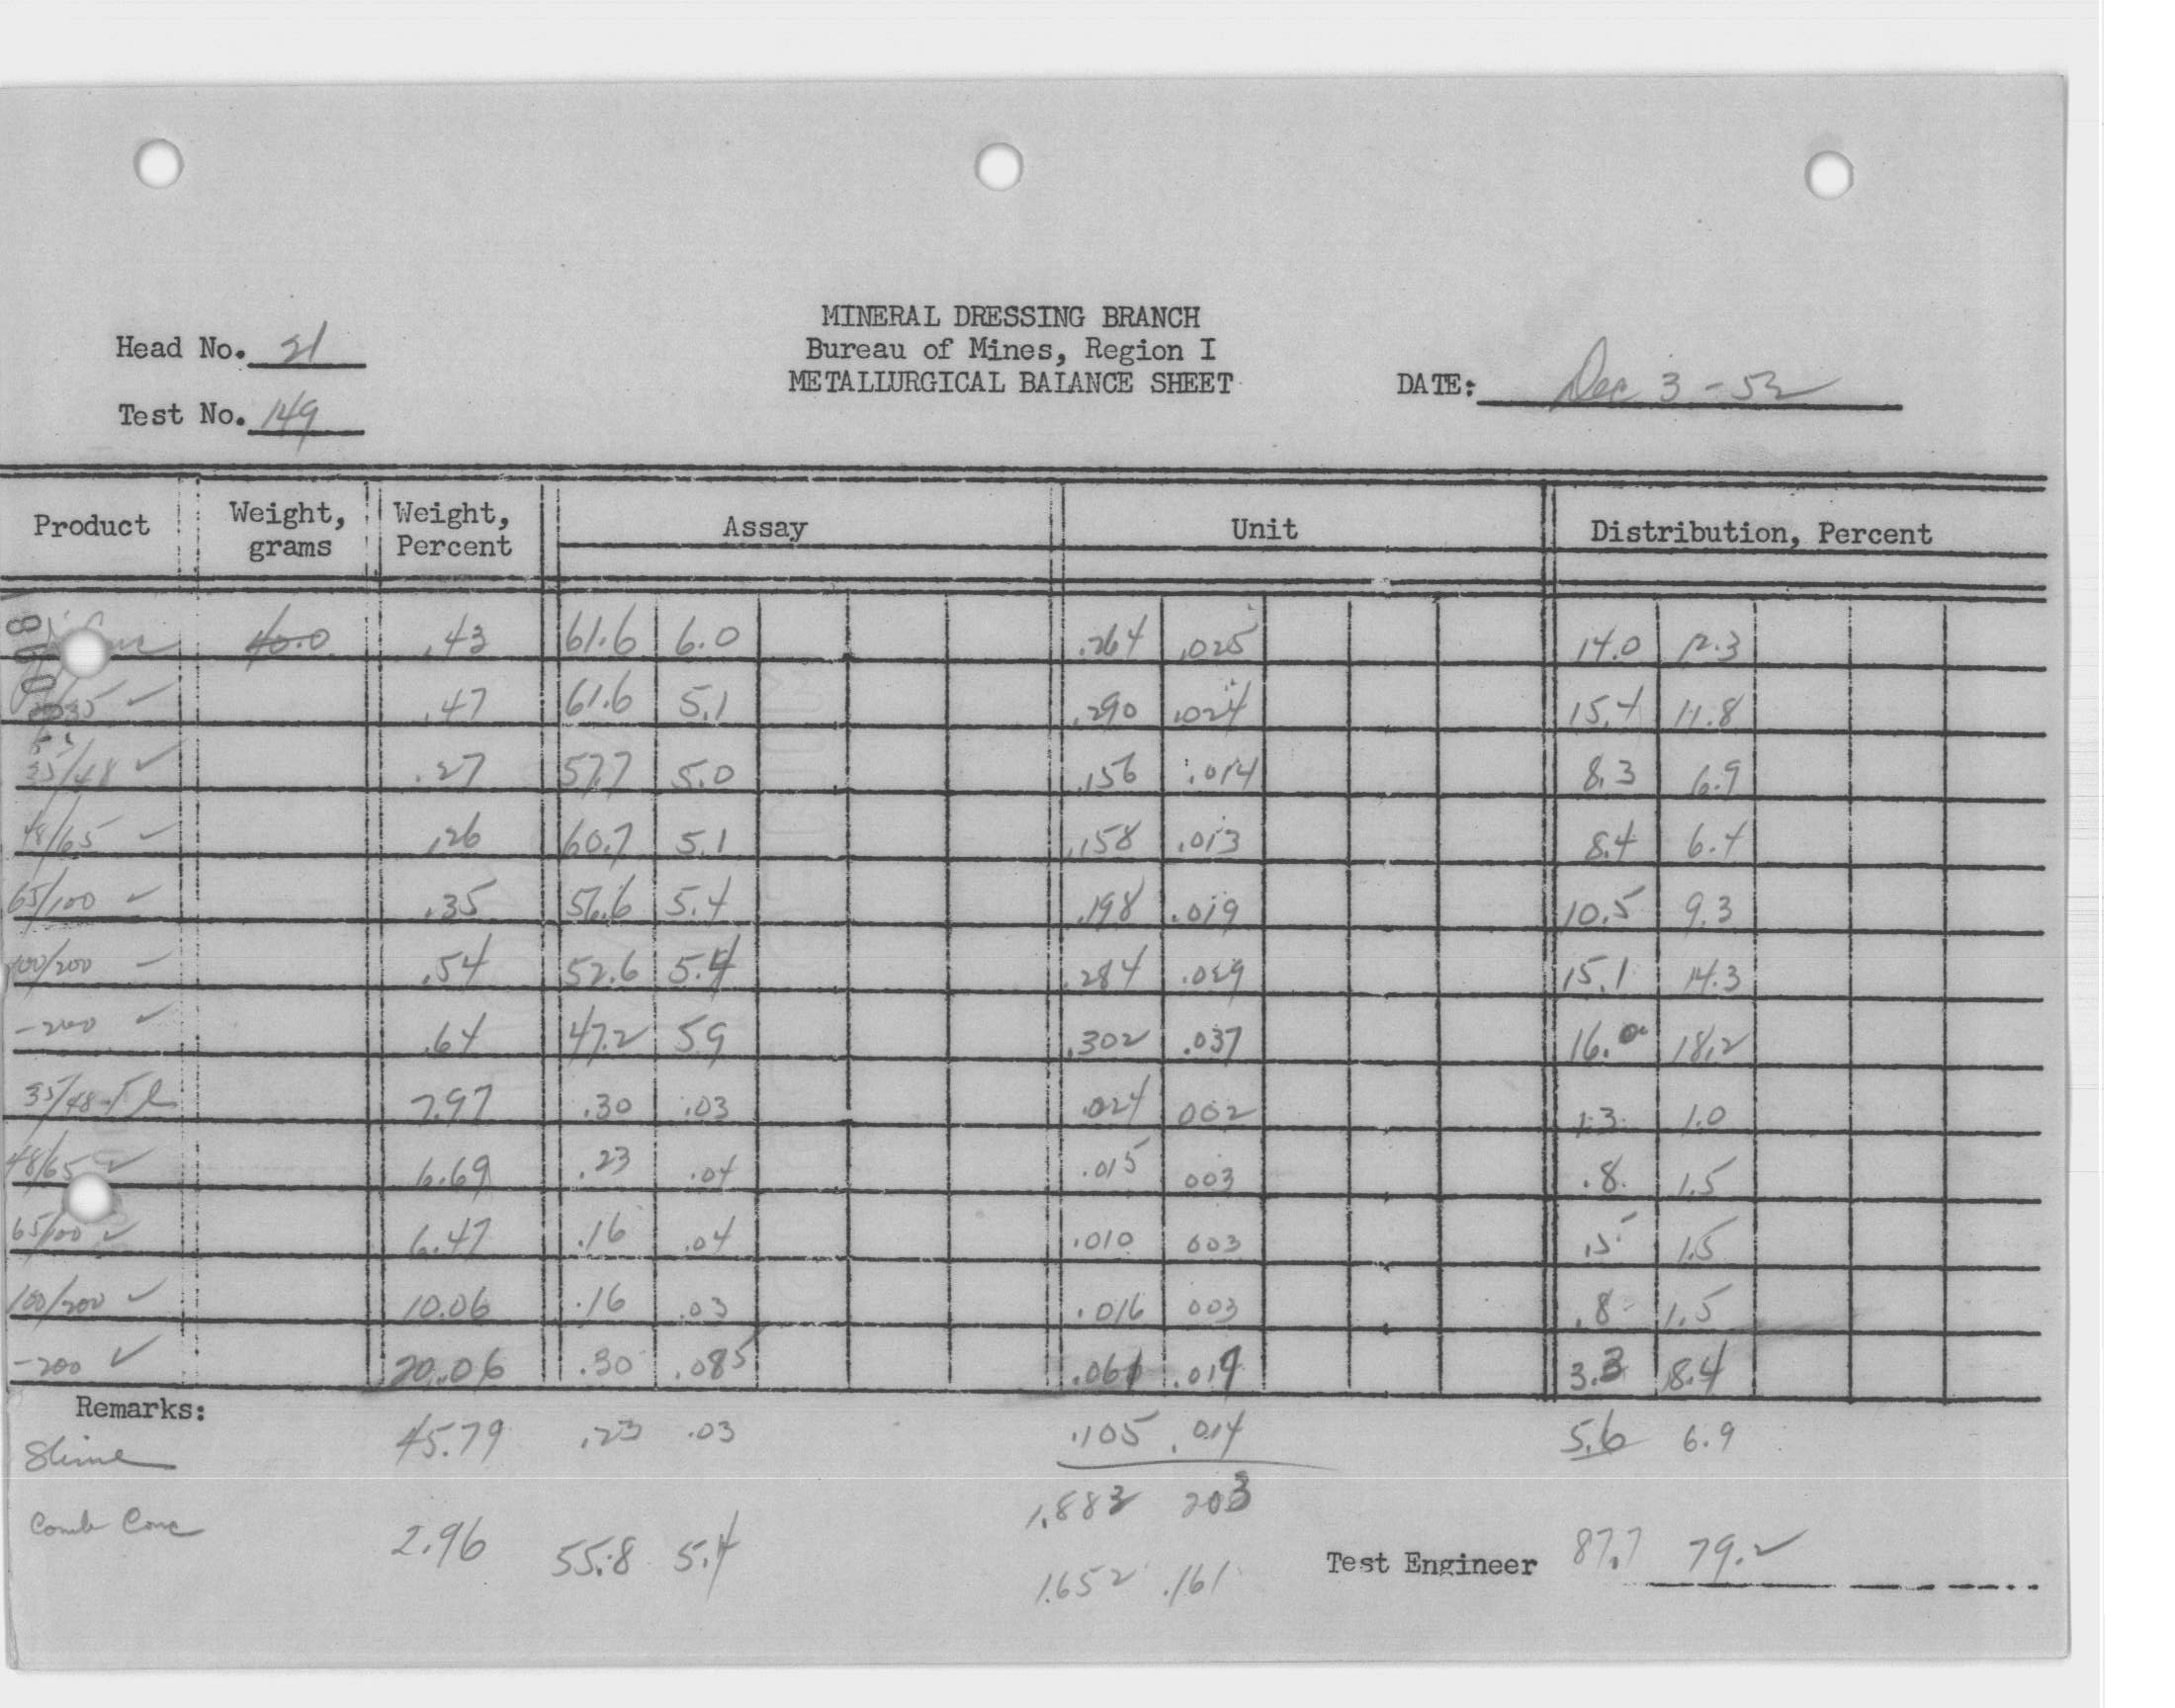 MINERAL DRESSING BRANCH
Head No. 21 Bureau of Mines, Region I
METALLURGICAL BALANCE SHEET DATE: Dec 3-52
Test No. 149
Product Weight, grams Weight, Percent Assay Unit Distribution, Percent
40.0 .43 61.6 6.0 .264 .025 14.0 12.3
.47 61.6 5.1 .290 .024 15.4 11.8
35/48 ✓ .27 57.7 5.0 .156 .014 8.3 6.9
48/65 ✓ .26 60.7 5.1 .158 .013 8.4 6.4
65/100 ✓ .35 56.6 5.4 .198 .019 10.5 9.3
100/200 – .54 52.6 5.4 .284 .029 15.1 14.3
-200 ✓ .64 47.2 59 .302 .037 16.0 18.2
35/48 Tl 7.97 .30 .03 .024 002 1.3 1.0
48/65 ✓ 6.69 .23 .04 .015 003 .8 1.5
65/100 ✓ 6.47 .16 .04 .010 003 .5 1.5
100/200 ✓ 10.06 .16 .03 .016 003 .8 1.5
-200 ✓ 20.06 .30 .085 .061 .017 3.3 8.4
Remarks:
Slime 45.79 .23 .03 .105 .014 5.6 6.9
1.883 203
Comb Conc 2.96 55.8 5.4 1.652 .161 Test Engineer 87.7 79.2